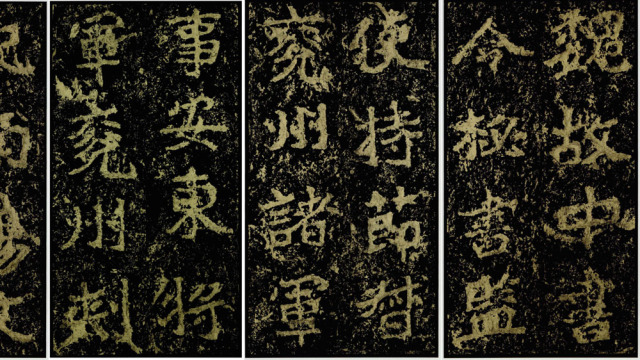 魏故中書
令秘書監
使持節督
兗州諸軍
事安東將
軍兗州刺